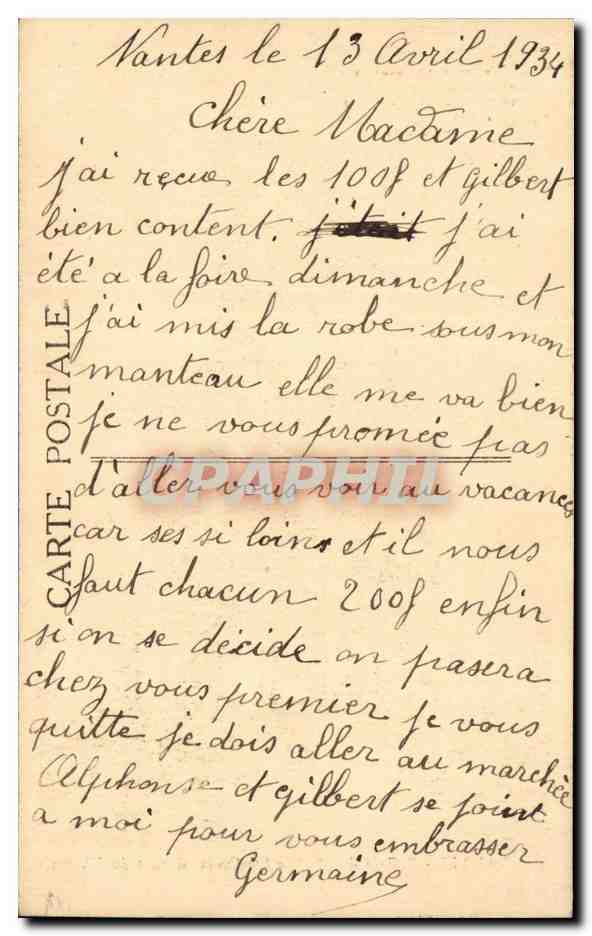 Nantes le 13 Avril 1934
Chère Madame
j'ai reçue les 100f et Gilbert
bien content. j'était j'ai
été a la foire dimanche et
j'ai mis la robe sous mon
manteau elle me va bien
je ne vous promée pas
d'aller vous voir au vacances
car ses si loins et il nous
faut chacun 200f enfin
si on se décide on pasera
chez vous premier je vous
quitte je dois aller au marchée
Alphonse et Gilbert se joint
a moi pour vous embrasser
Germaine
CARTE POSTALE
CPAPHIL